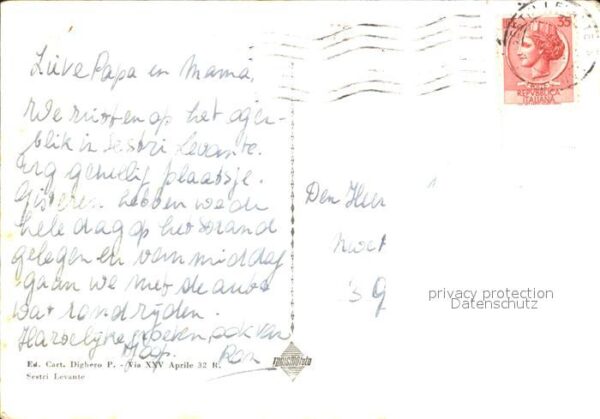 Lieve Papa en Mama,
We zitten op het ogen-
blik in Sestri Levante.
Erg gezellig plaatsje.
Gisteren hebben we de
hele dag op het strand
gelegen en vanmiddag
gaan we met de auto
wat rondrijden.
Hartelijke groeten ook van
Joop. Ron
Den Heer
privacy protection
Datenschutz
35
REPVBBLICA
ITALIANA
Ed. Cart. Dighero P. - Via XXV Aprile 32 R.
Sestri Levante